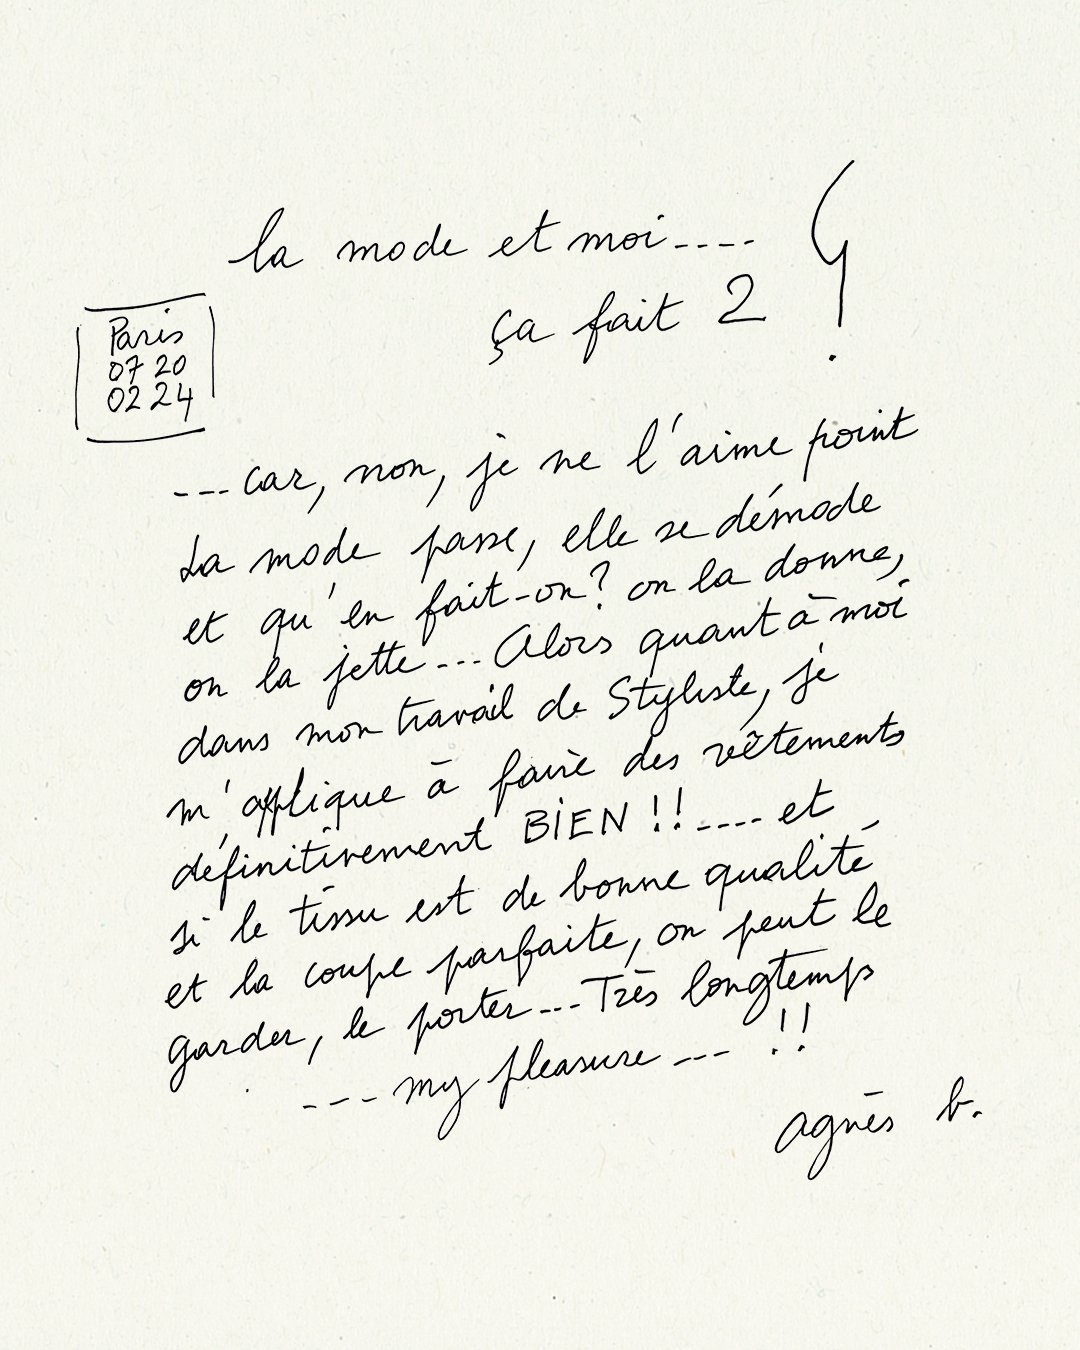 la mode et moi ----
ça fait 2 !
Paris
07 20
02 24
--- car, non, je ne l'aime point
La mode passe, elle se démode
et qu'en fait-on? on la donne,
on la jette --- Alors quant à moi
dans mon travail de Styliste, je
m'applique à faire des vêtements
définitivement BIEN !! ---- et
si le tissu est de bonne qualité
et la coupe parfaite, on peut le
garder, le porter --- Très longtemps
--- my pleasure --- !!
agnès b.